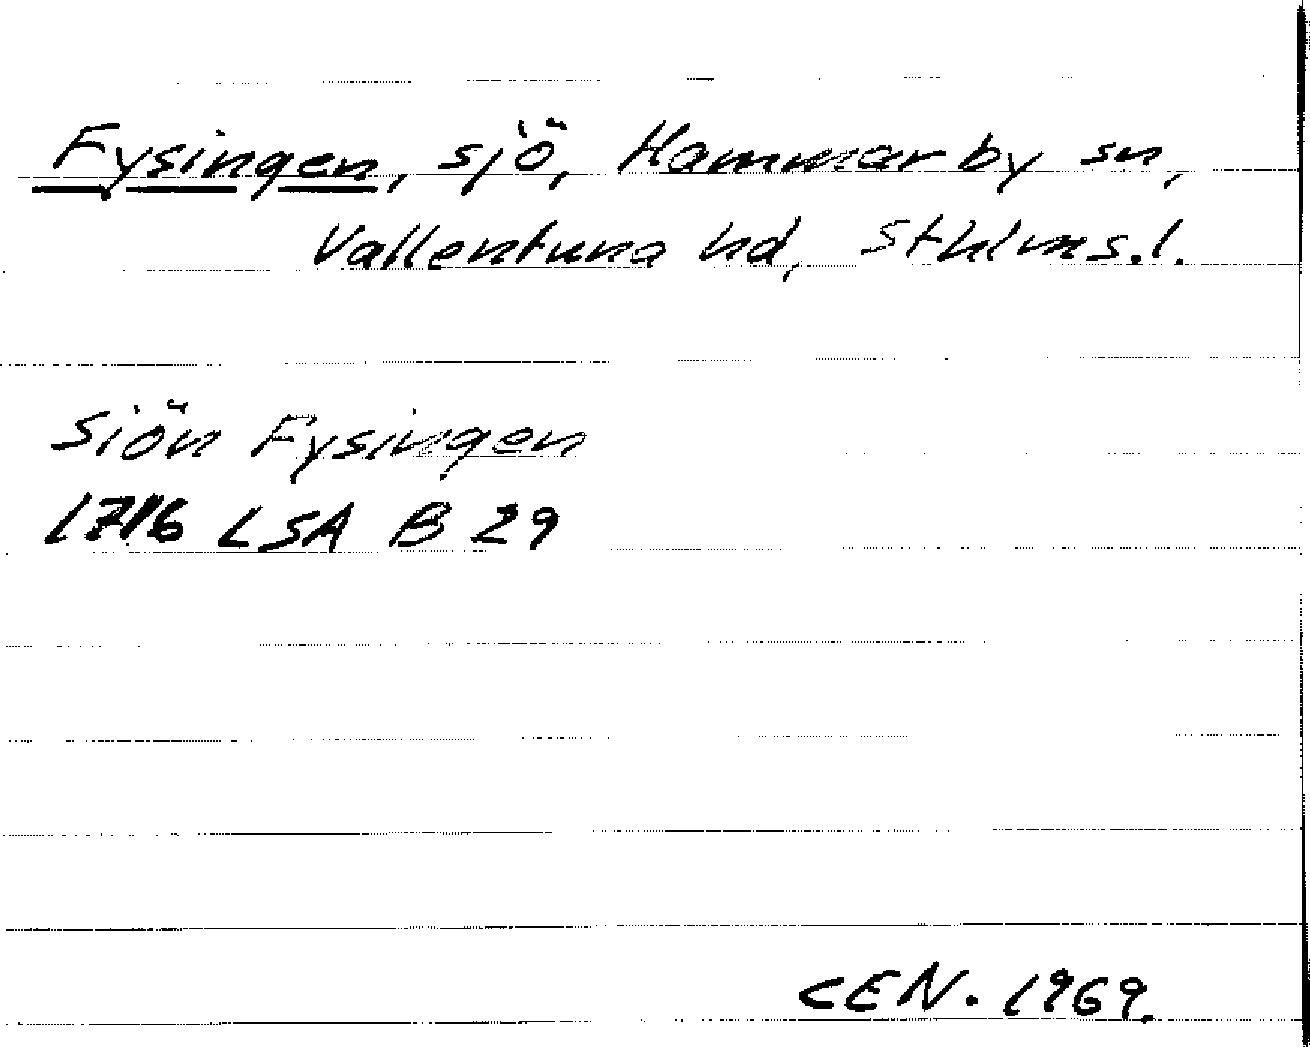 Fysingen, sjö, Hammarby sn,
Vallentuna hd, Sthlms.l.
Siön Fysingen
1716 LSA B 29
CEN. 1969.